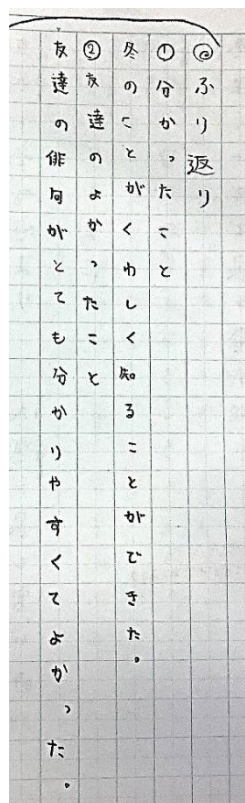 ◎ふり返り
①分かったこと
冬のことがくわしく知ることができた。
②友達のよかったこと
友達の俳句がとても分かりやすくてよかった。